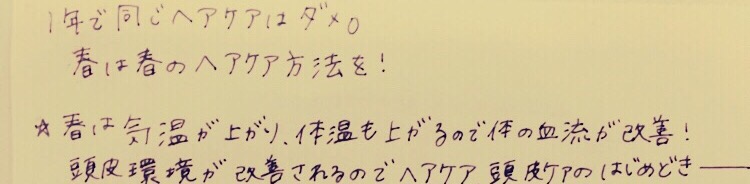 1年で同じヘアケアはダメ。
春は春のヘアケア方法を!
☆春は気温が上がり、体温も上がるので体の血流が改善!
頭皮環境が改善されるのでヘアケア 頭皮ケアのはじめどき――